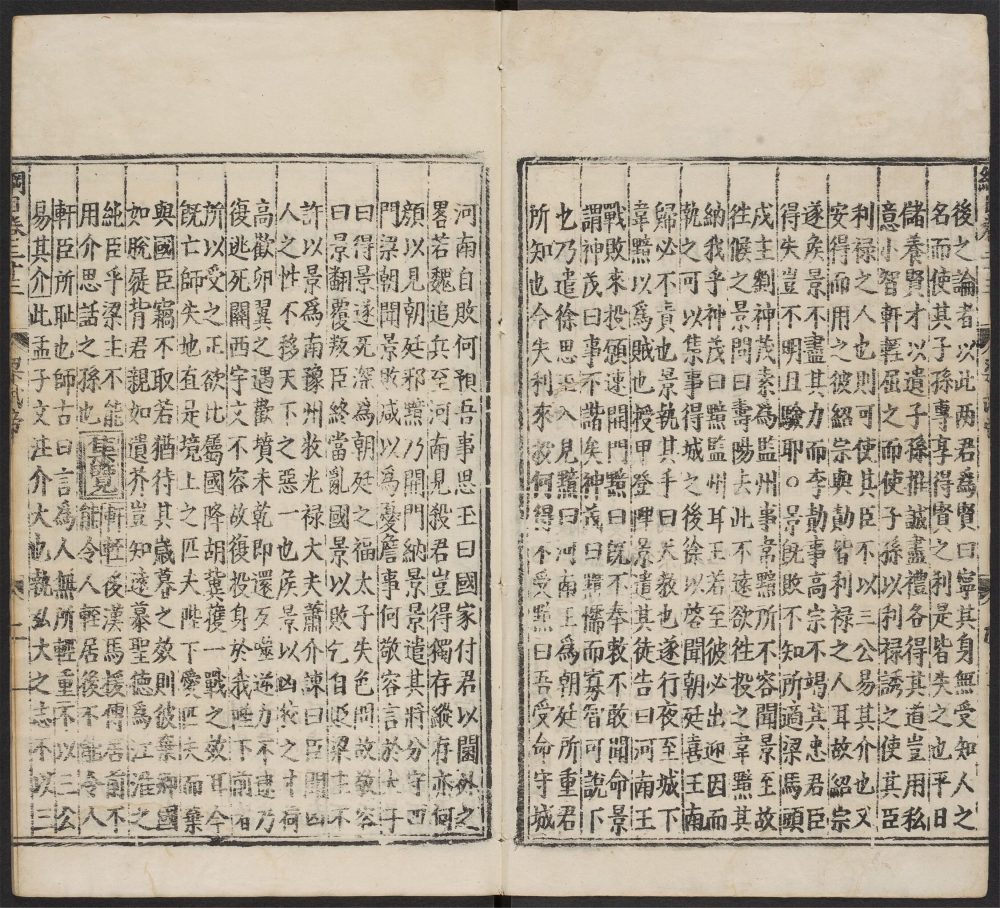 後之論者以此两君為賢曰寧其身無受知人之
名而使其子孫專享得賢之利是皆失之也平日
儲養賢才以遺子孫推誠盡禮各得其道豈用私
意小智軒輊屈之而使子孫以利禄誘之使其臣
利禄之人也則可使其臣不以三公易其介也又
安得而用之彼紹宗與勣智利禄之人耳故紹宗
遂矦景不盡其力而李勣事高宗不竭其忠君臣
得失豈不明且驗耶○景旣敗不知所適梁馬頭
戍主劉神茂素為監州事韋黯所不容聞景至故
徃候之景問曰壽陽去此不遠欲徃投之韋黯其
納我乎神茂曰黯監州耳王若至彼必出迎因而
執之可以集事得城之後徐以啓聞朝廷喜王南
歸必不責也景執其手曰天教也遂行夜至城下
韋黯以為賊也授甲登陴景遣其徒告曰河南王
戰敗來投願速開門黯曰旣不奉敕不敢聞命景
謂神茂曰事不諧矣神茂曰黯懦而寡智可說下
也乃遣徐思玉入見黯曰河南王為朝廷所重君
所知也今失利來投何得不受黯曰吾受命守城
河南自敗何預吾事思王曰國家付君以閫外之
畧若魏追兵至河南見殺君豈得獨存縱存亦何
顔以見朝廷邪黯乃開門納景景遣其將分守四
門梁朝聞景敗咸以為憂詹事何敬容言於太子
曰得景遂死深為朝廷之福太子失色問故敬容
曰景翻覆叛臣終當亂國景以敗乞自貶梁主不
許以景爲南豫州牧光禄大夫蕭介諫曰臣聞凶
人之性不移天下之惡一也矦景以凶狡之才荷
高歡卵翼之遇歡墳未乾即還反噬逆力不逮乃
復逃死關西宇文不容故復投身於我陛下前者
所以受之正欲比屬國降胡冀獲一戰之效耳今
旣亡師失地直是境上之匹夫陛下愛匹夫而棄
與國臣竊不取若猶待其歲暮之效則彼棄鄉國
如脫屣背君親如遺芥豈知遠慕聖德為江淮之
純臣乎梁主不能
用介思話之孫也
集覽
軒輊後漢馬援傳居前不
能令人輊居後不能令人
軒臣所耻也師古曰言爲人無所輕重不以三公
易其介此孟子文注介大也執弘大之志不以三